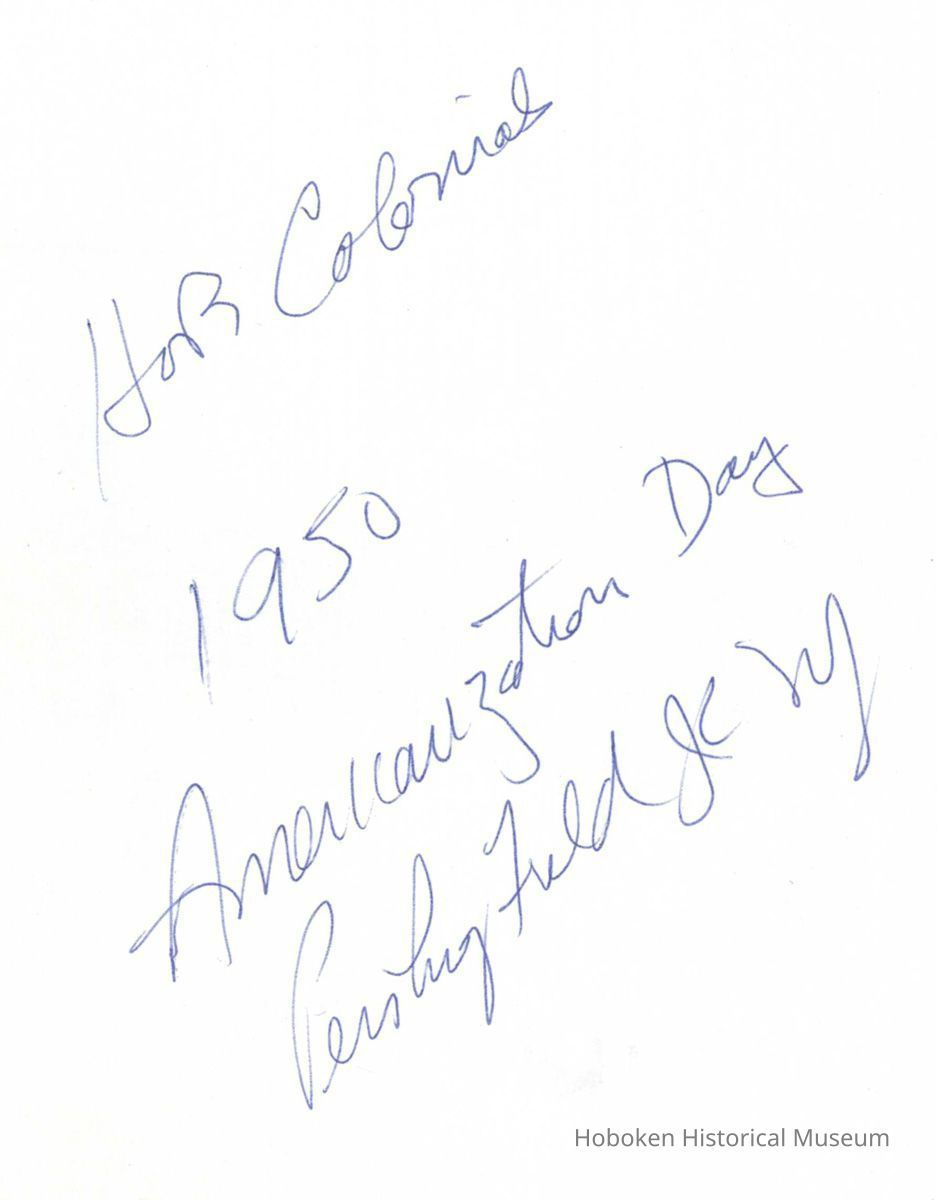 HoB Colonials
1950
Americanization Day
Pershing Field JC NJ
Hoboken Historical Museum